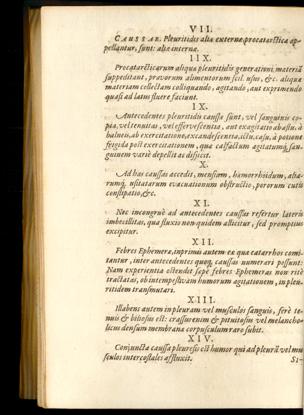 VII.
CAUSSAE Pleuritidis aliæ externæ, procatarcticæ ap-
pellantur, sunt: aliæ internæ.
IIX.
Procatarcticarum aliquæ pleuritidis generationi materiã
suppeditant, pravorum alimentorum scil. usus, &c. aliquæ
materiam collectam colliquando, agitando, aut exprimendo
quasi ad latus fluere faciunt.
IX.
Antecedentes pleuritidis caussæ sunt, vel sanguinis co-
pia, vel tenuitas, vel effervescentia, aut exagitatio ab æstu, à
balneis, ab exercitatione, excandescentia, ictu, casu, à potione
frigida post exercitationem, quæ calfactum agitatumq; san-
guinem variè depellit ac disjicit.
X.
Ad has caussas accedit, mensium, hæmorrhoidum, alia-
rumq; usitatarum evacuationum obstructio, pororum cutis
constipatio, &c.
XI.
Nec incongruè ad antecedentes caussas refertur lateris
imbecillitas, qua fluxio non quidem allicitur, sed promptius
excipitur.
XII.
Febres Ephemeræ, inprimis autem eæ quæ catarrhos comi-
tantur, inter antecedentes quoq; caussas numerari possunt:
Nam experientia ostendit sæpè febres Ephemeras non ritè
tractatas, ob intempestivam humorum agitationem, in pleu-
ritidem transmutari.
XIII.
Illabens autem in pleuram vel musculos sanguis, ferè te-
nuis & biliosus est: crassus enim & pituitosus vel melancho-
licus densum membranæ corpusculum rarò subit.
XIV.
Conjuncta caussa pleureseos est humor qui ad pleurã vel mu-
sculos intercostales affluxit.
Si-